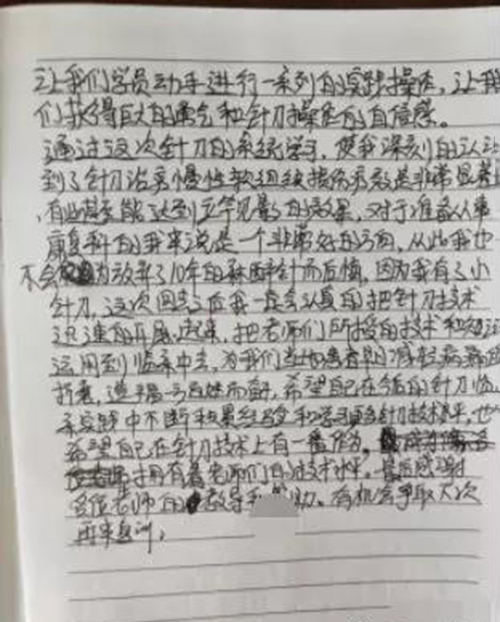 让我们学员动手进行一系列的实践操作,让我
们获得巨大的勇气和针刀操作的自信感。
通过这次针刀的系统学习,使我深刻的认识
到了针刀治疗慢性软组织损伤疗效是非常显著
,有些甚至能达到立竿见影的效果,对于准备从事
康复科的我来说是一个非常好的方向,从此我也
不会因为放弃了10年的麻醉针而后悔,因为我有了小
针刀,这次回去之后我一定会认真的把针刀技术
迅速的开展起来,把老师们所授的技术和知识
运用到临床中去,为我们当地患者即减轻病痛的
折磨,造福一方百姓而奋,希望自己在今后的针刀临
床实践中不断积累经验和学习更多针刀技术水平,也
希望自己在针刀技术上有一番作为,
拥有着老师们的技术水平。最后感谢
各位老师的教导和帮助。有机会争取下次
再来复训。